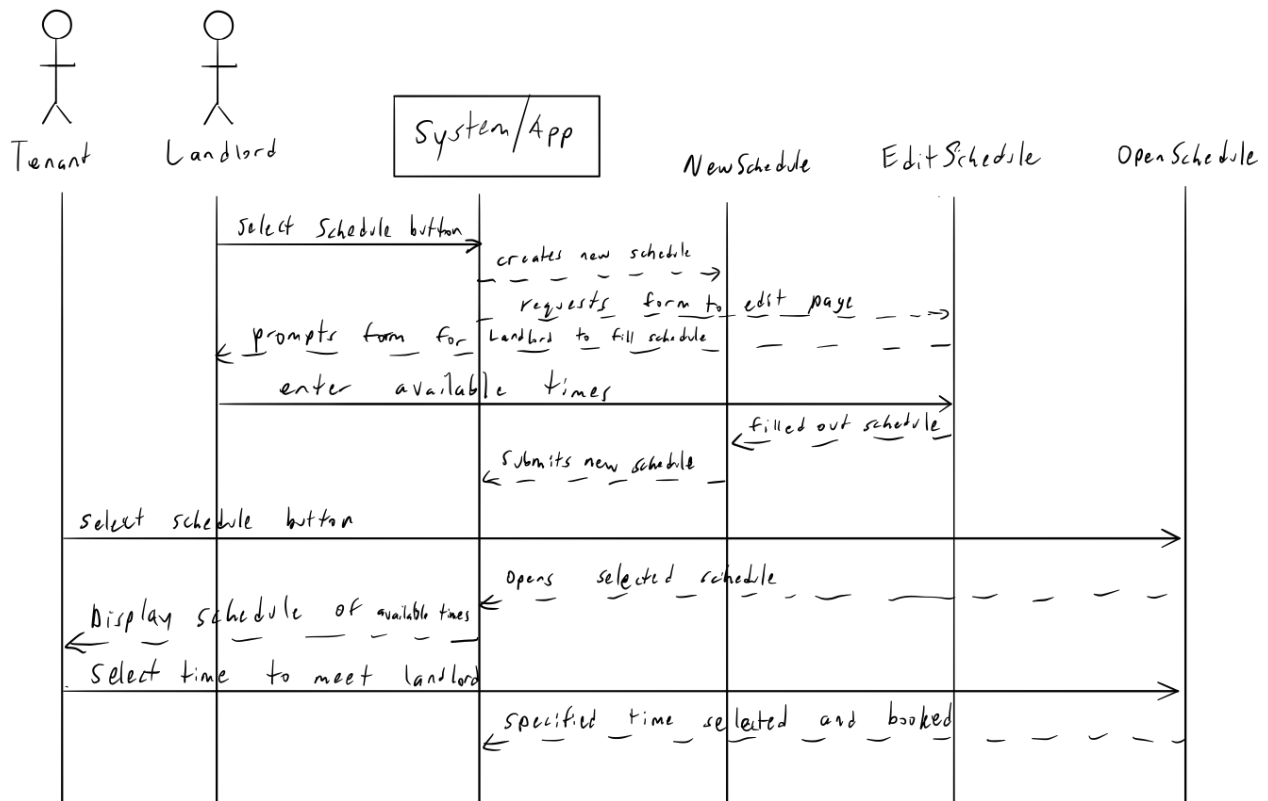 Tenant
Landlord
System/App
NewSchedule
EditSchedule
OpenSchedule
select schedule button
creates new schedule
requests form to edit page
prompts form for Landlord to fill schedule
enter available times
filled out schedule
submits new schedule
select schedule button
Opens selected schedule
Display schedule of available times
select time to meet landlord
specified time selected and booked